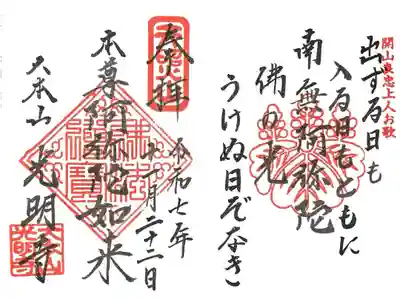 開山良忠上人お歌
出ずる日も
入る日もともに
南無阿弥陀
佛の光
うけぬ日ぞなき
奉拝
令和七年
十一月二十二日
本尊阿弥陀如来
佛法僧寶
大本山光明寺